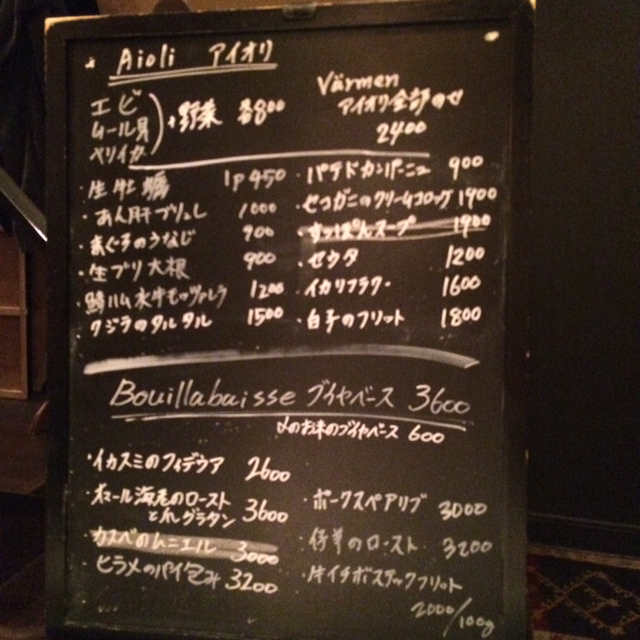 Aioli アイオリ
エビ
ムール貝
ヤリイカ
+野菜 各800
Värmen
アイオリ全部のせ
2400
・生牡蠣 1p 450
・あん肝ブリュレ 1000
・まぐろのうなじ 900
・生ブリ大根 900
・鱒ハム水牛モッツァレラ 1200
・クジラのタルタル 1500
・パテドカンパーニュ 900
・セコガニのクリームコロッケ 1900
・すっぽんスープ 1900
・セウタ 1200
・イカリフラワー 1600
・白子のフリット 1800
Bouillabaisse ブイヤベース 3600
〆のお米のブイヤベース 600
・イカスミのフィデウア 2600
・オマール海老のロースト
と爪グラタン 3600
・カスベのムニエル 3000
・ヒラメのパイ包み 3200
・ポークスペアリブ 3000
・仔羊のロースト 3200
・牛イチボステックフリット
2000/100g